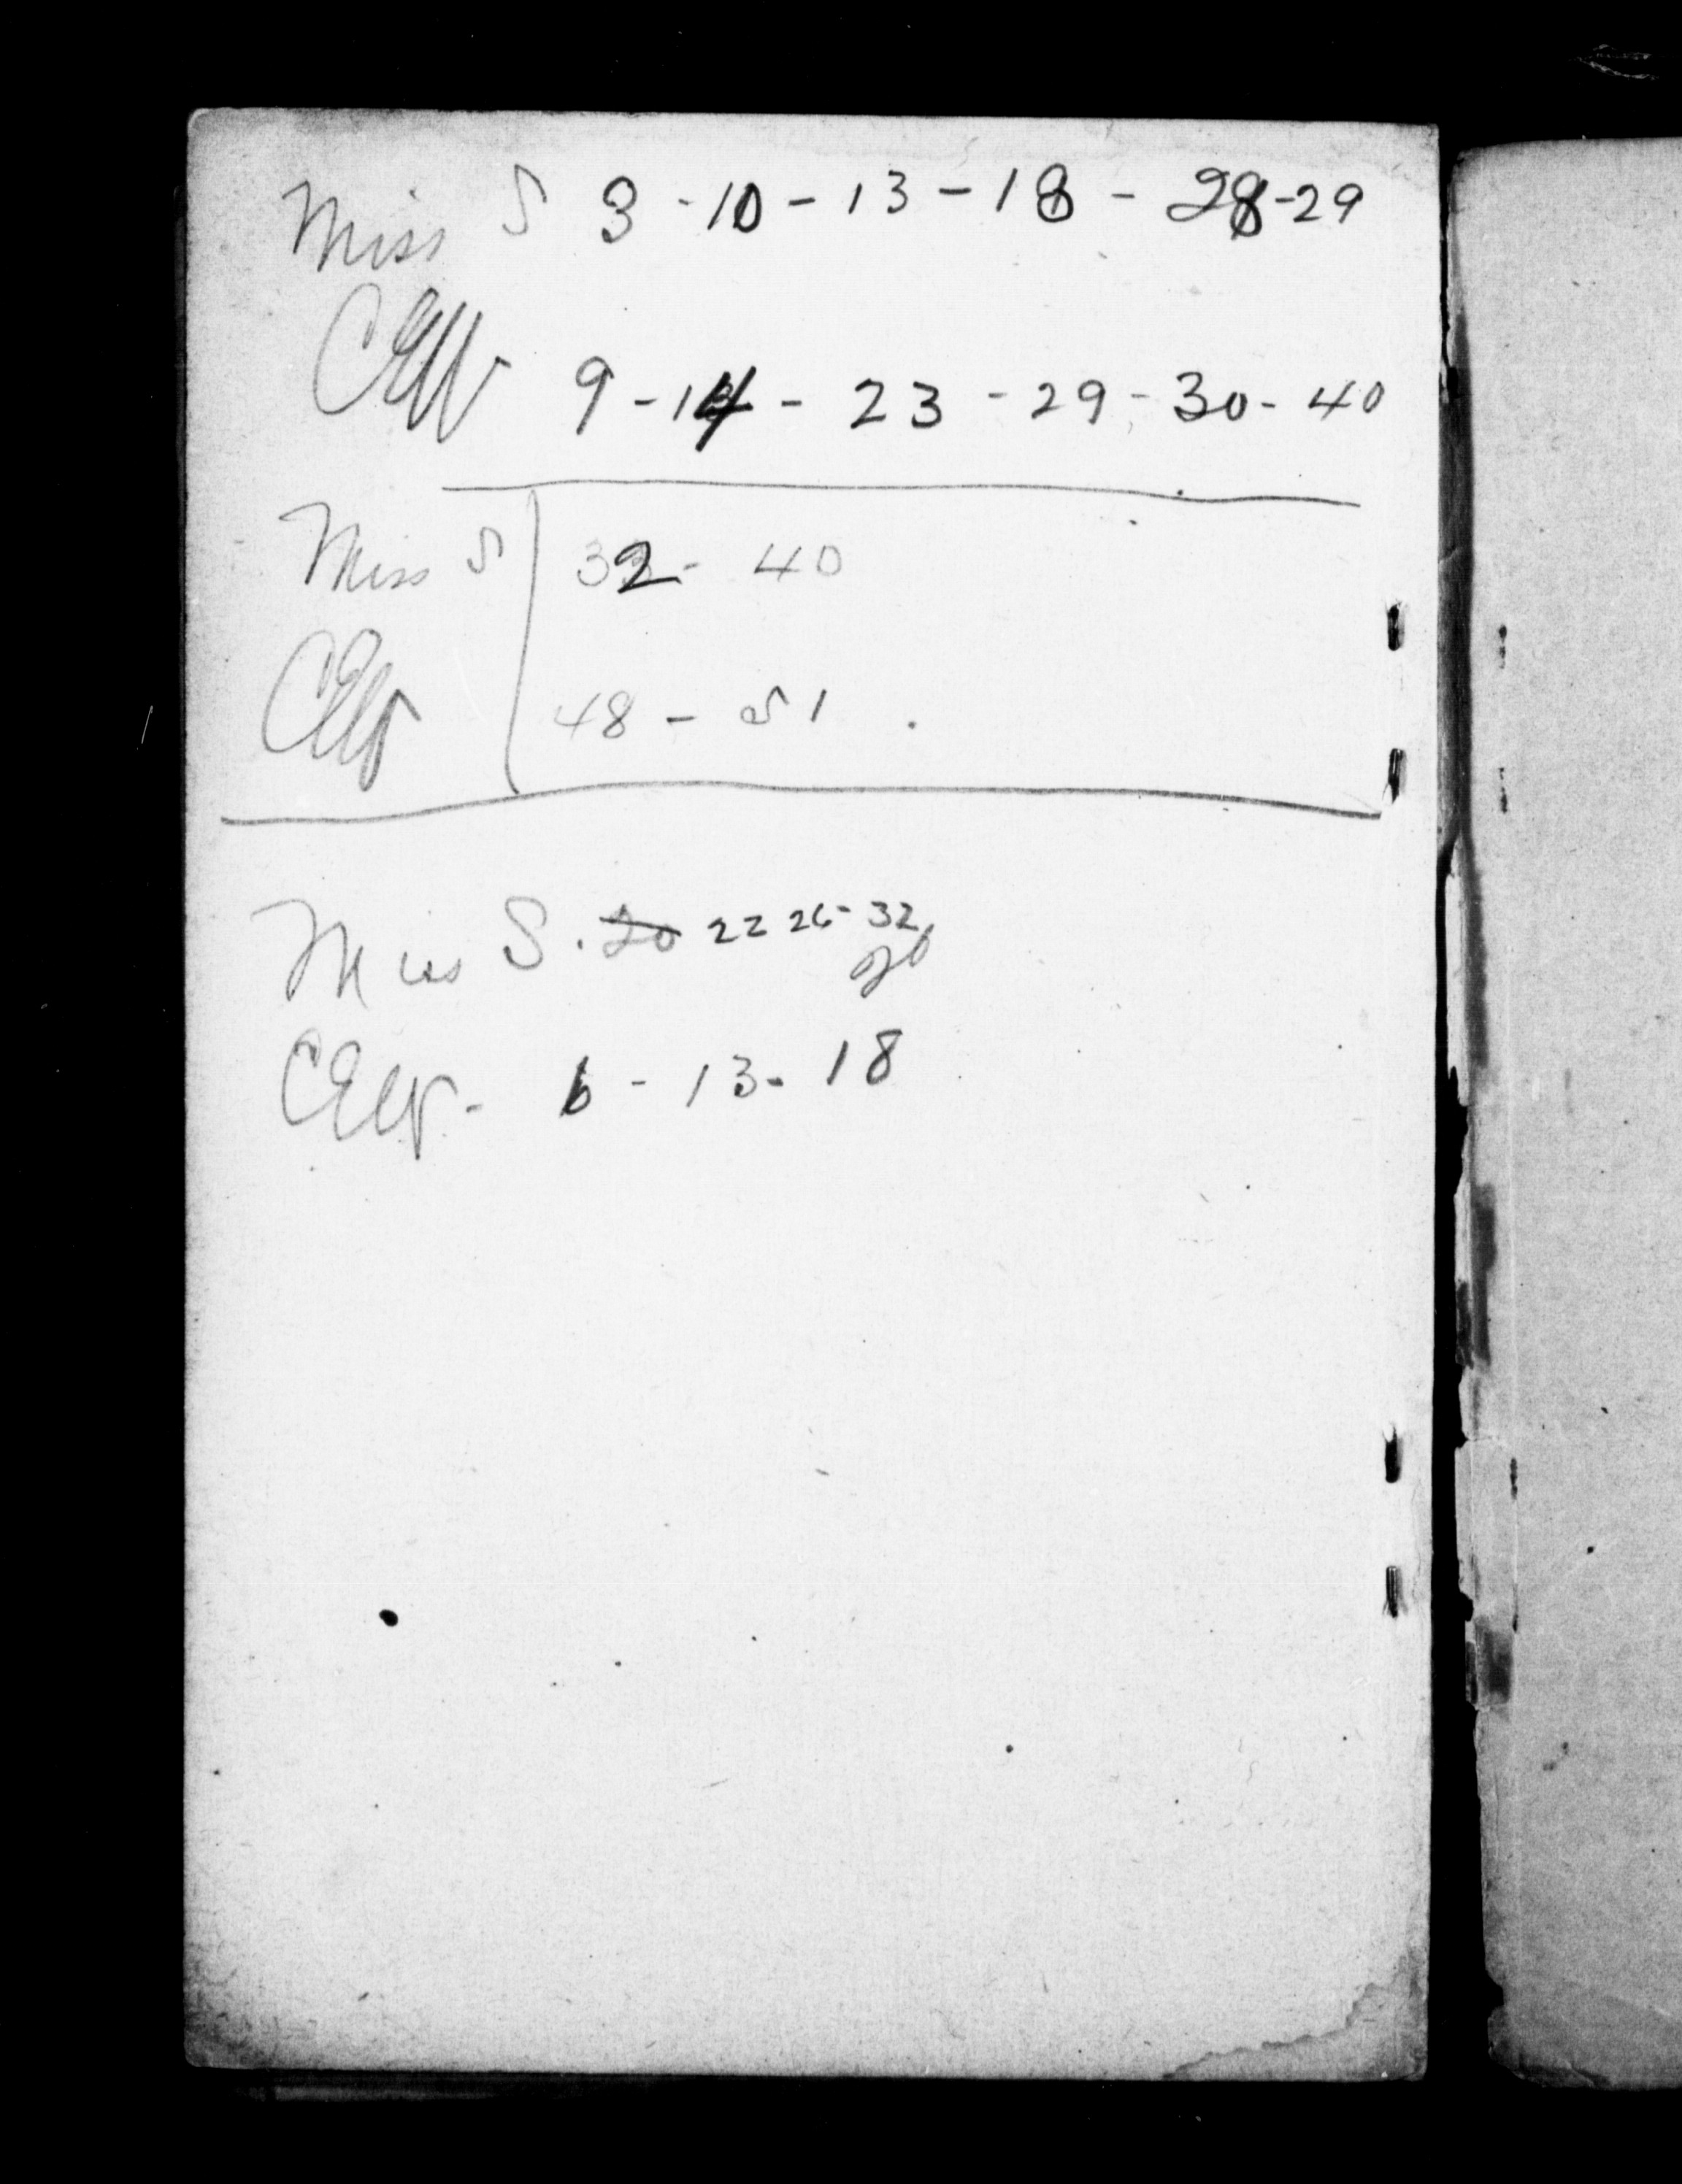 Miss S 3 - 10 - 13 - 18 - 28 - 29
CEW 9 - 14 - 23 - 29 - 30 - 40
Miss S 32 - 40
CEW 48 - 51
Miss S. 20 22 26 - 32
20
CEW - 6 - 13 - 18